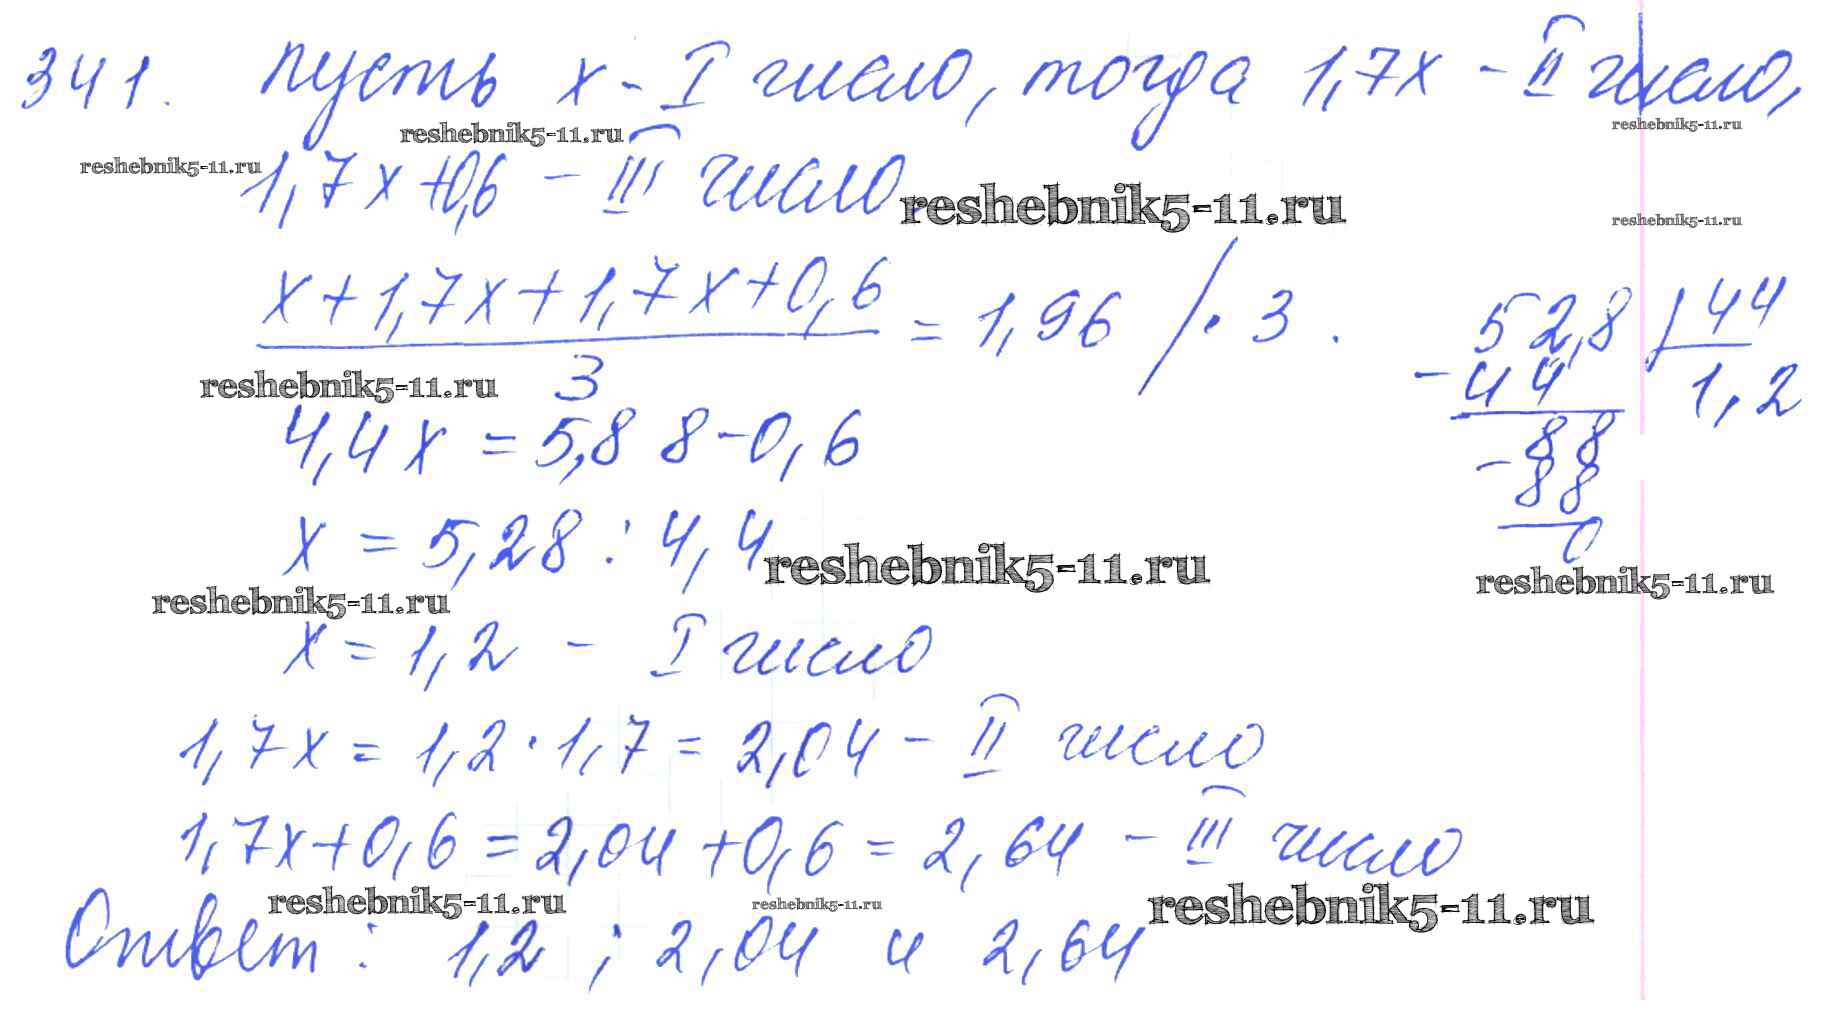 341. Пусть x - I число, тогда 1,7x - II число,
reshebnik5-11.ru
reshebnik5-11.ru
reshebnik5-11.ru
1,7x+0,6 - III число.
reshebnik5-11.ru
reshebnik5-11.ru
x+1,7x+1,7x+0,6
= 1,96 / · 3.
3
52,8 | 44
-44 1,2
-88
88
0
reshebnik5-11.ru
4,4x = 5,88-0,6
x = 5,28 : 4,4
reshebnik5-11.ru
reshebnik5-11.ru
reshebnik5-11.ru
x = 1,2 - I число
1,7x = 1,2 · 1,7 = 2,04 - II число
1,7x+0,6 = 2,04+0,6 = 2,64 - III число
reshebnik5-11.ru
reshebnik5-11.ru
reshebnik5-11.ru
Ответ: 1,2 ; 2,04 и 2,64